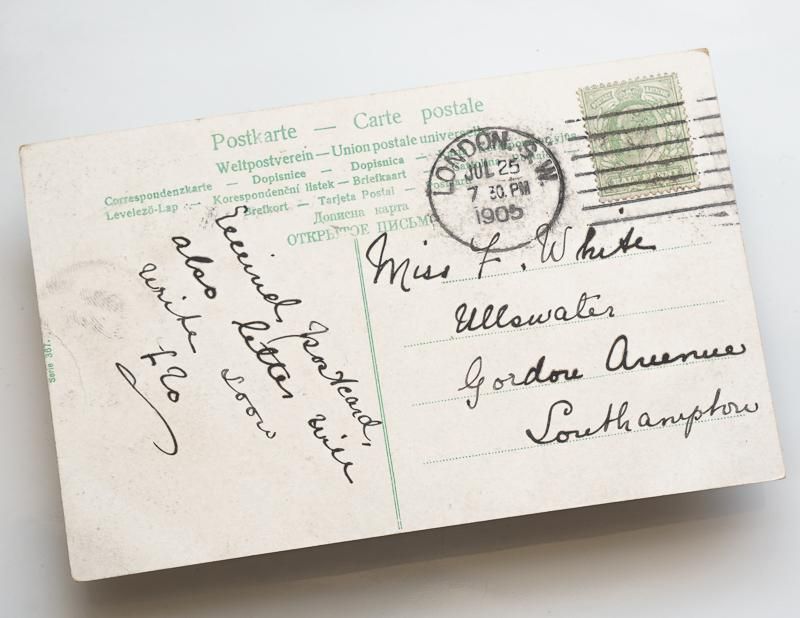 Postkarte — Carte postale
Weltpostverein — Union postale universelle
Correspondenzkarte — Dopisnice — Dopisnica —
Levelező-Lap — Korespondenční lístek — Briefkaart —
Brefkort — Tarjeta Postal —
Дописна карта
ОТКРЫТОЕ ПИСЬМО
LONDON. S.W.
JUL 25
7 30. PM
1905
Received, postcard,
also letter will
write soon
Miss F. White
Ullswater
Gordon Avenue
Southampton
Serie 367.